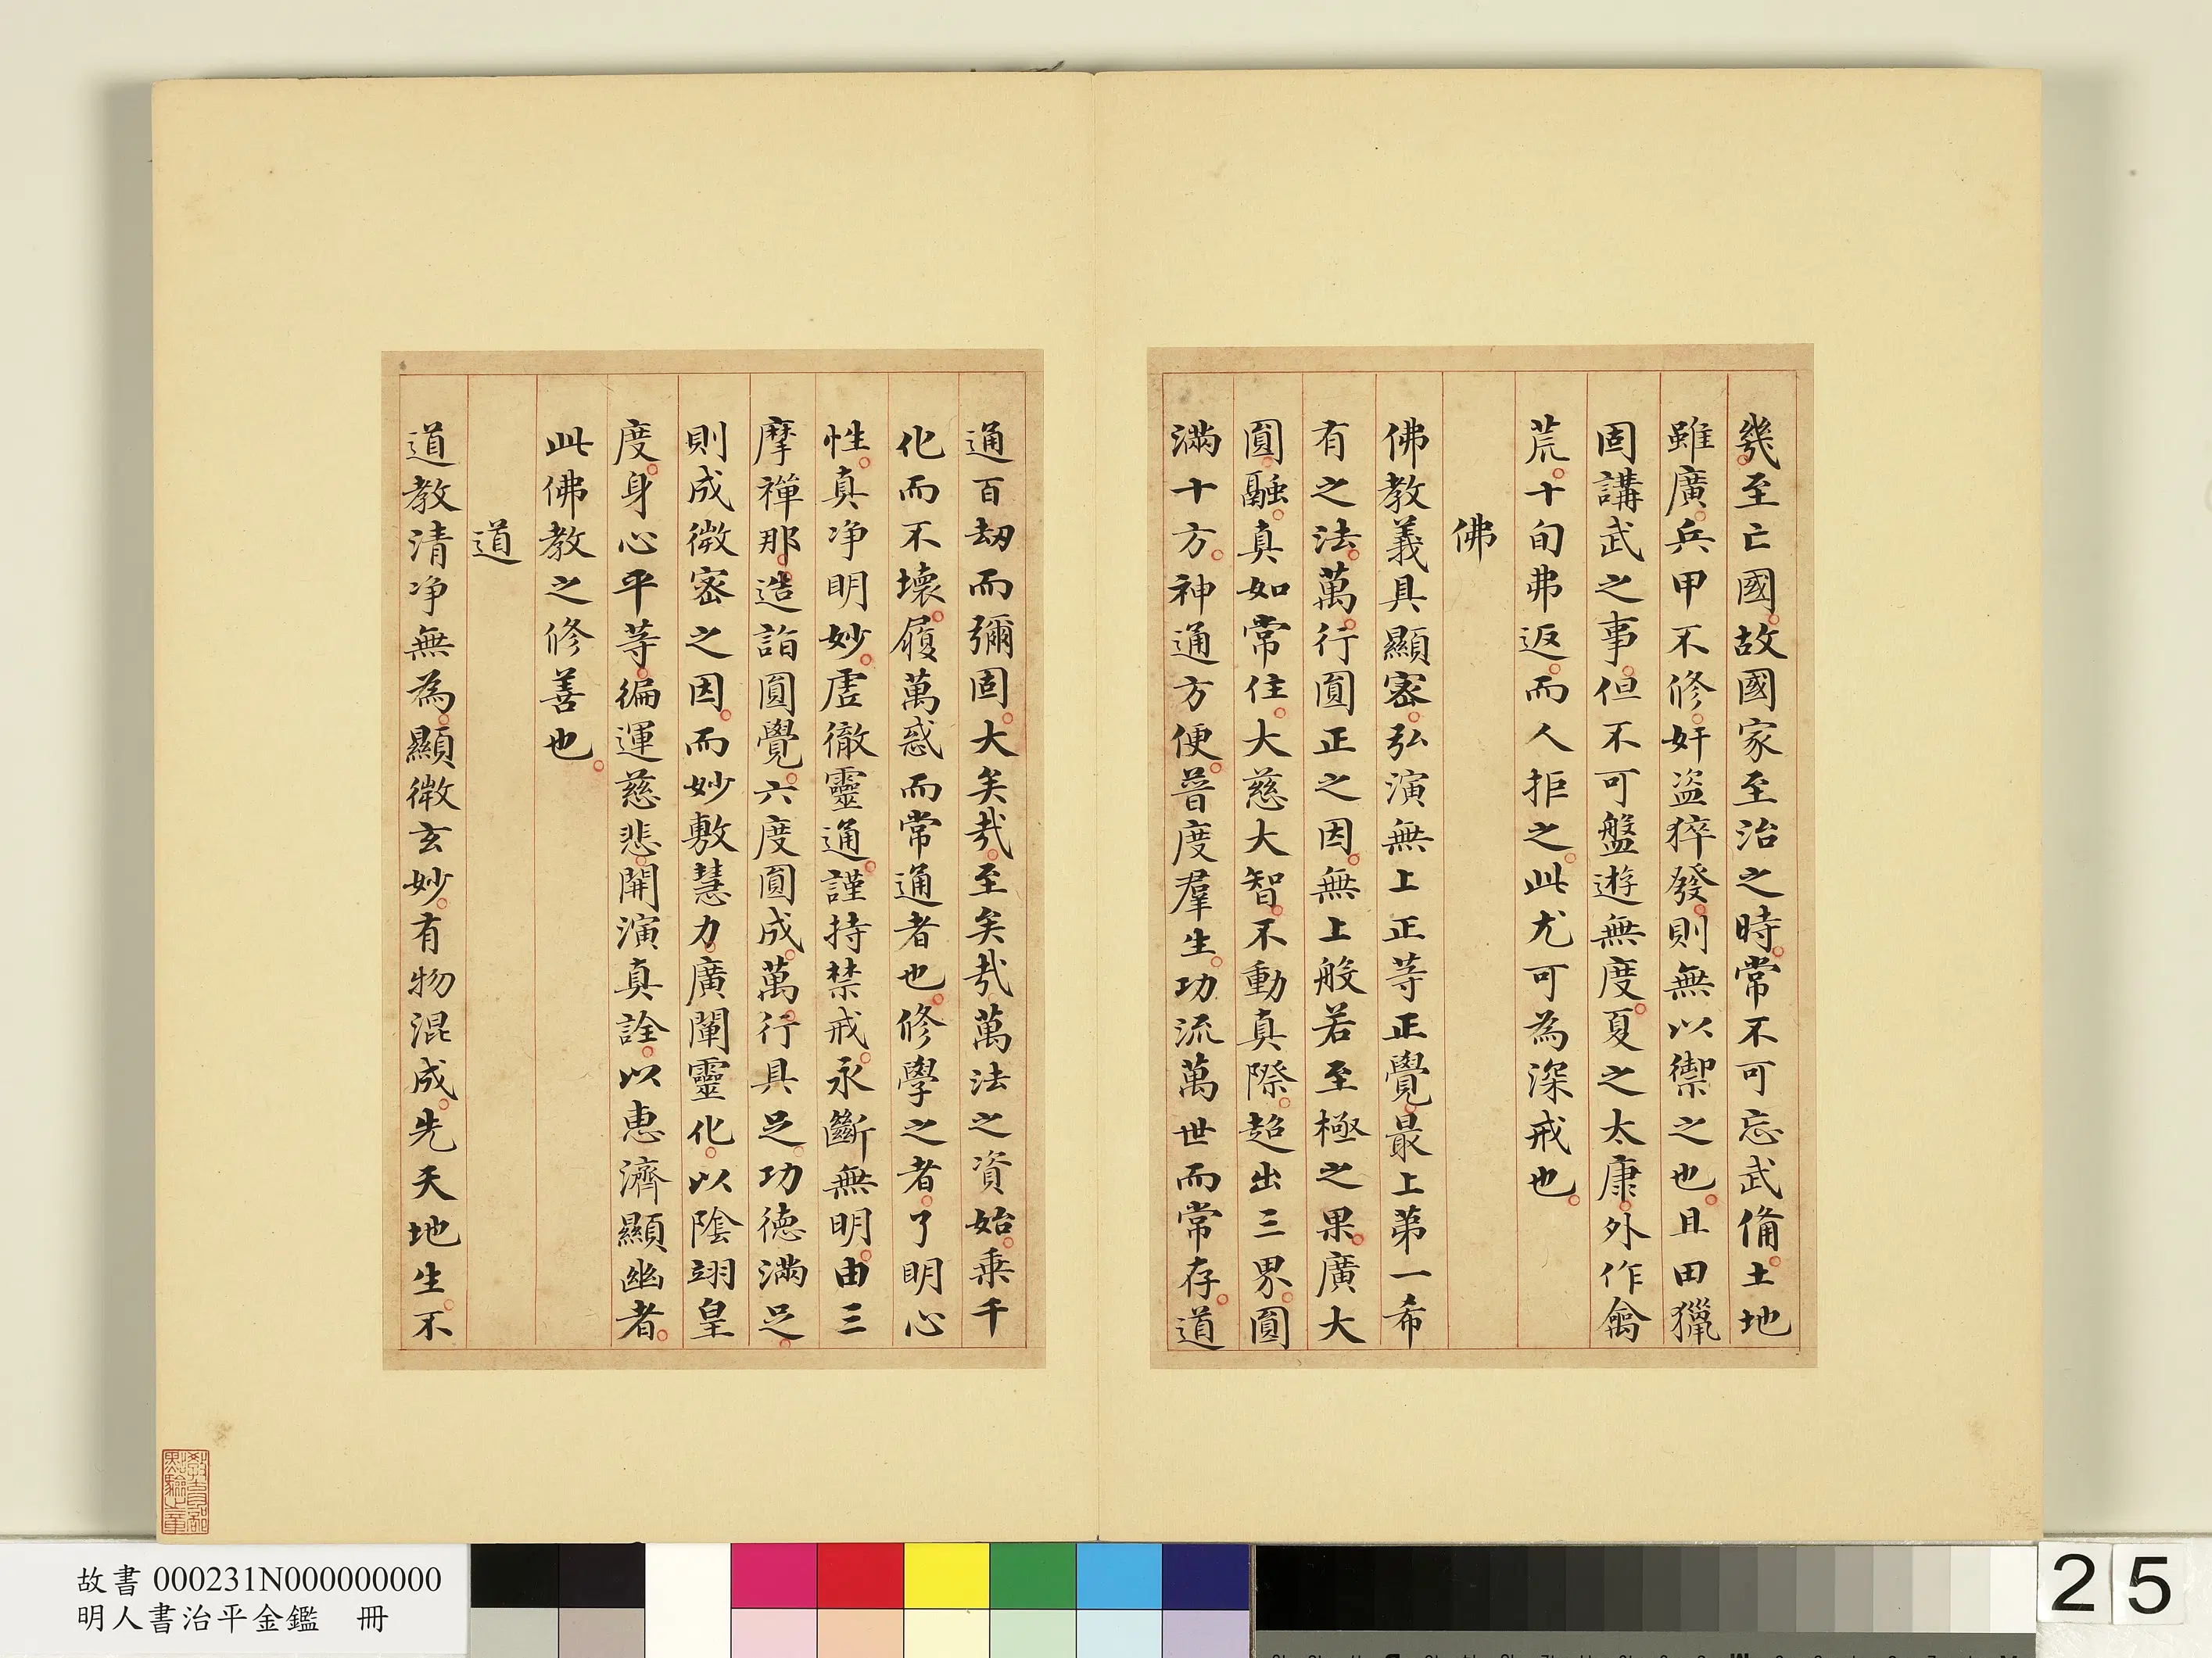 幾至亡國故國家至治之時常不可忘武備土地
雖廣兵甲不修奸盜猝發則無以禦之也且田獵
固講武之事但不可盤遊無度夏之太康外作禽
荒十旬弗返而人拒之此尤可為深戒也
佛
佛教義具顯密弘演無上正等正覺最上第一希
有之法萬行圓正之因無上般若至極之果廣大
圓融真如常住大慈大智不動真際超出三界圓
滿十方神通方便普度羣生功流萬世而常存道
通百劫而彌固大矣哉至矣哉萬法之資始乗千
化而不壞履萬惑而常通者也修學之者了明心
性真淨明妙虛徹靈通謹持禁戒永斷無明由三
摩禪那造詣圓覺六度圓成萬行具足功德滿足
則成微密之因而妙敷慧力廣闡靈化以陰翊皇
度身心平等徧運慈悲開演真詮以惠濟顯幽者
此佛教之修善也
道
道教清淨無為顯微玄妙有物混成先天地生不
故書 000231N000000000
明人書治平金鑑 冊
25